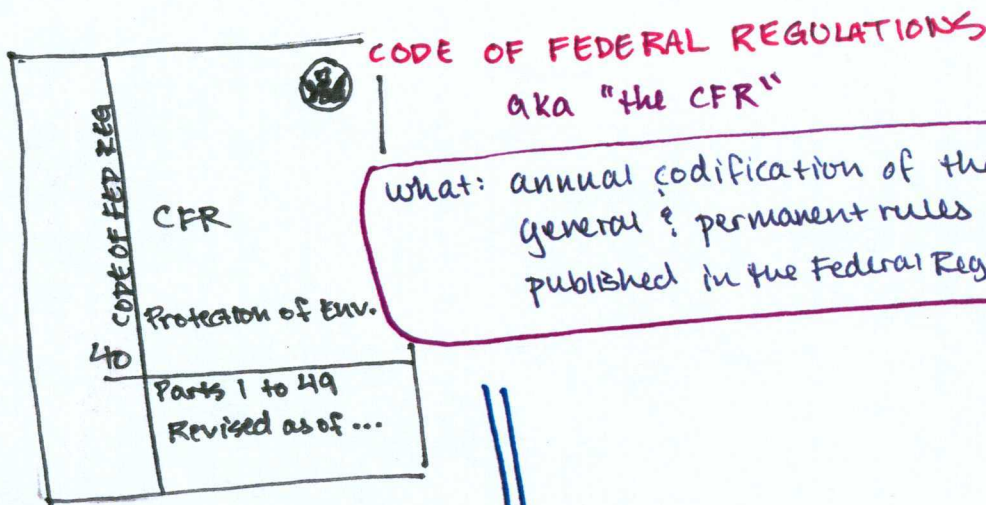 CODE OF FEDERAL REGULATIONS
aka "the CFR"
what: annual codification of the
general & permanent rules
published in the Federal Reg
CODE OF FED REG
40
CFR
Protection of Env.
Parts 1 to 49
Revised as of ...